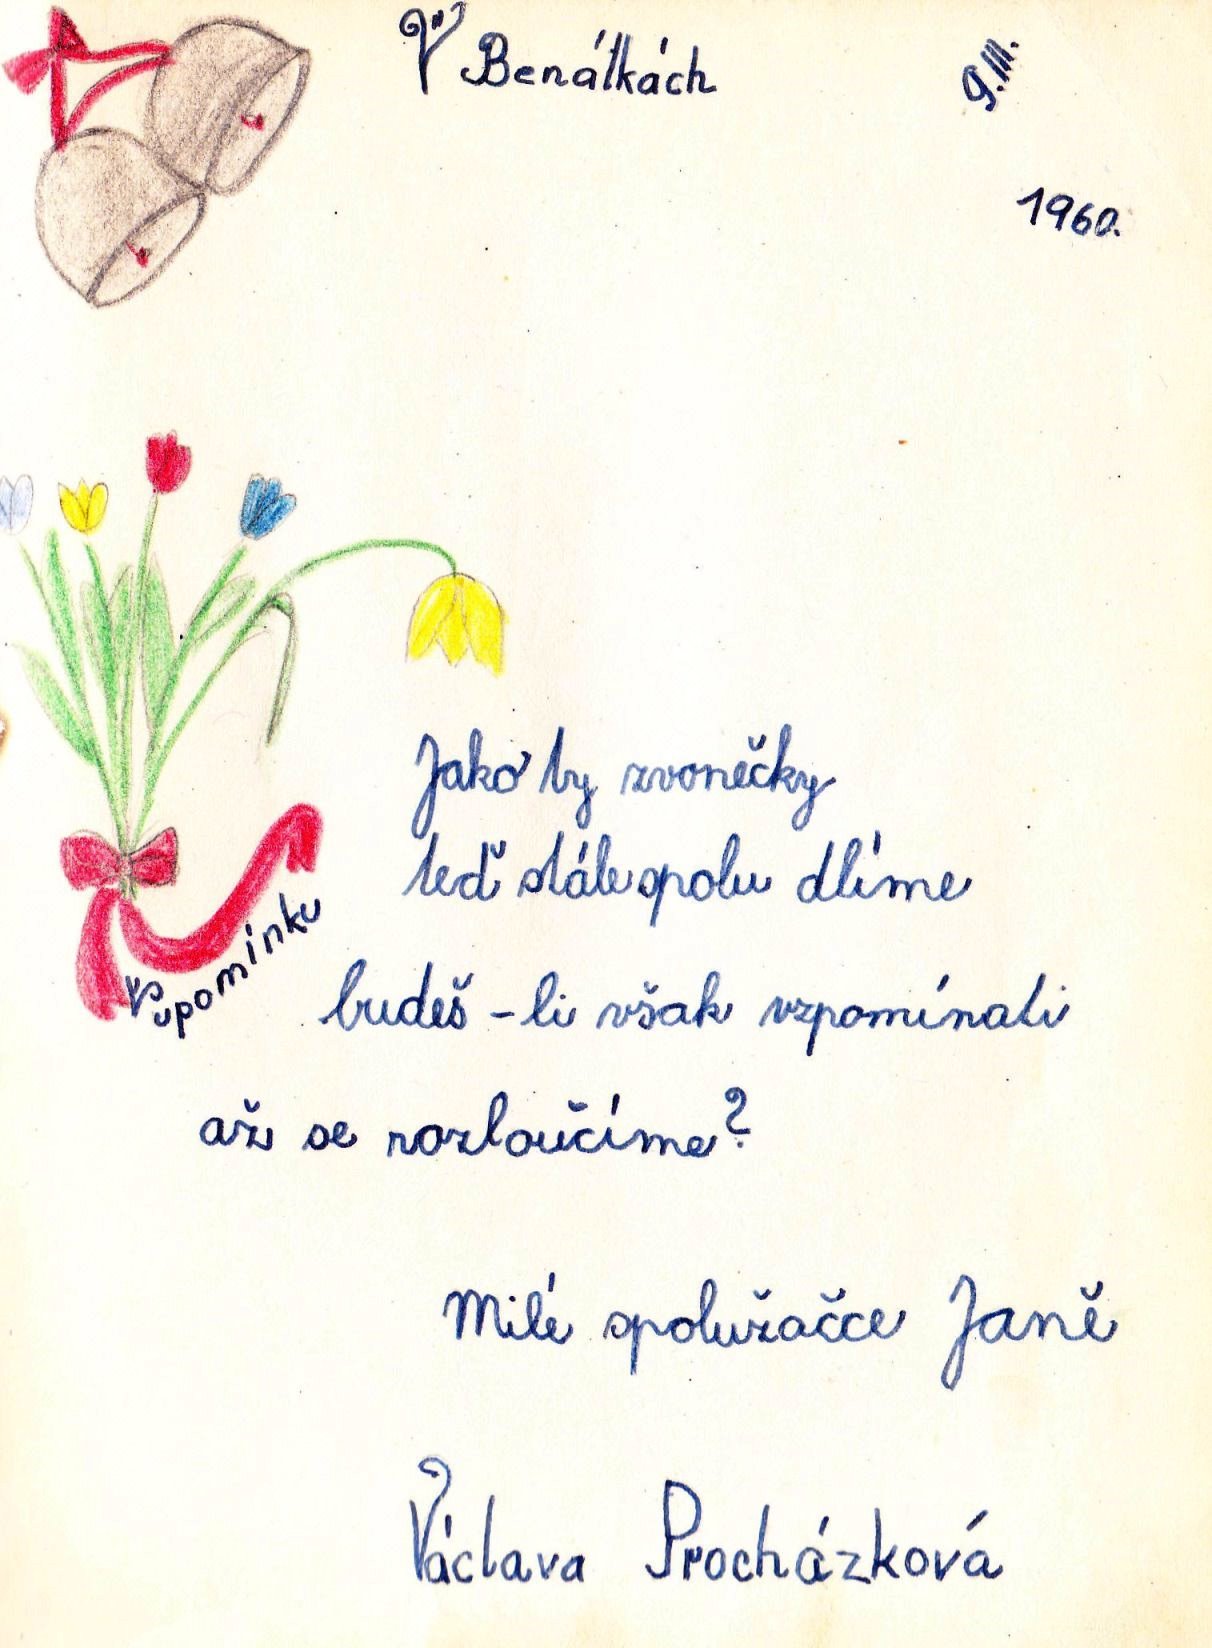 V Benátkách
9.III.
1960.
Jako by zvonečky
teď stále spolu dlíme
V upomínku
budeš-li však vzpomínati
až se rozloučíme?
Milé spolužačce Janě
Václava Procházková